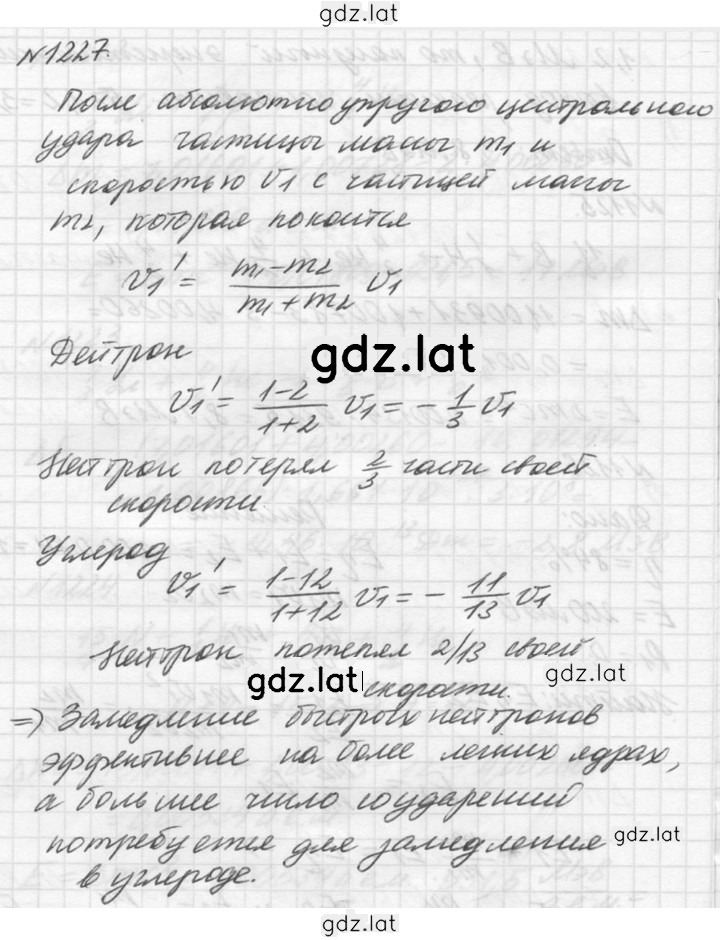 gdz.lat
№1227.
После абсолютно упругого центрального
удара частицы массы m₁ и
скоростью v₁ с частицей массы
m₂, которая покоится
v₁' = (m₁-m₂)/(m₁+m₂) v₁
Дейтрон
gdz.lat
v₁' = (1-2)/(1+2) v₁ = - 1/3 v₁
Нейтрон потерял 2/3 части своей
скорости
Углерод
v₁' = (1-12)/(1+12) v₁ = - 11/13 v₁
Нейтрон потерял 2/13 своей
gdz.lat
gdz.lat
скорости.
=> Замедление быстрых нейтронов
эффективнее на более легких ядрах,
а большее число соударений
потребуется для замедления
gdz.lat
в углероде.
gdz.lat